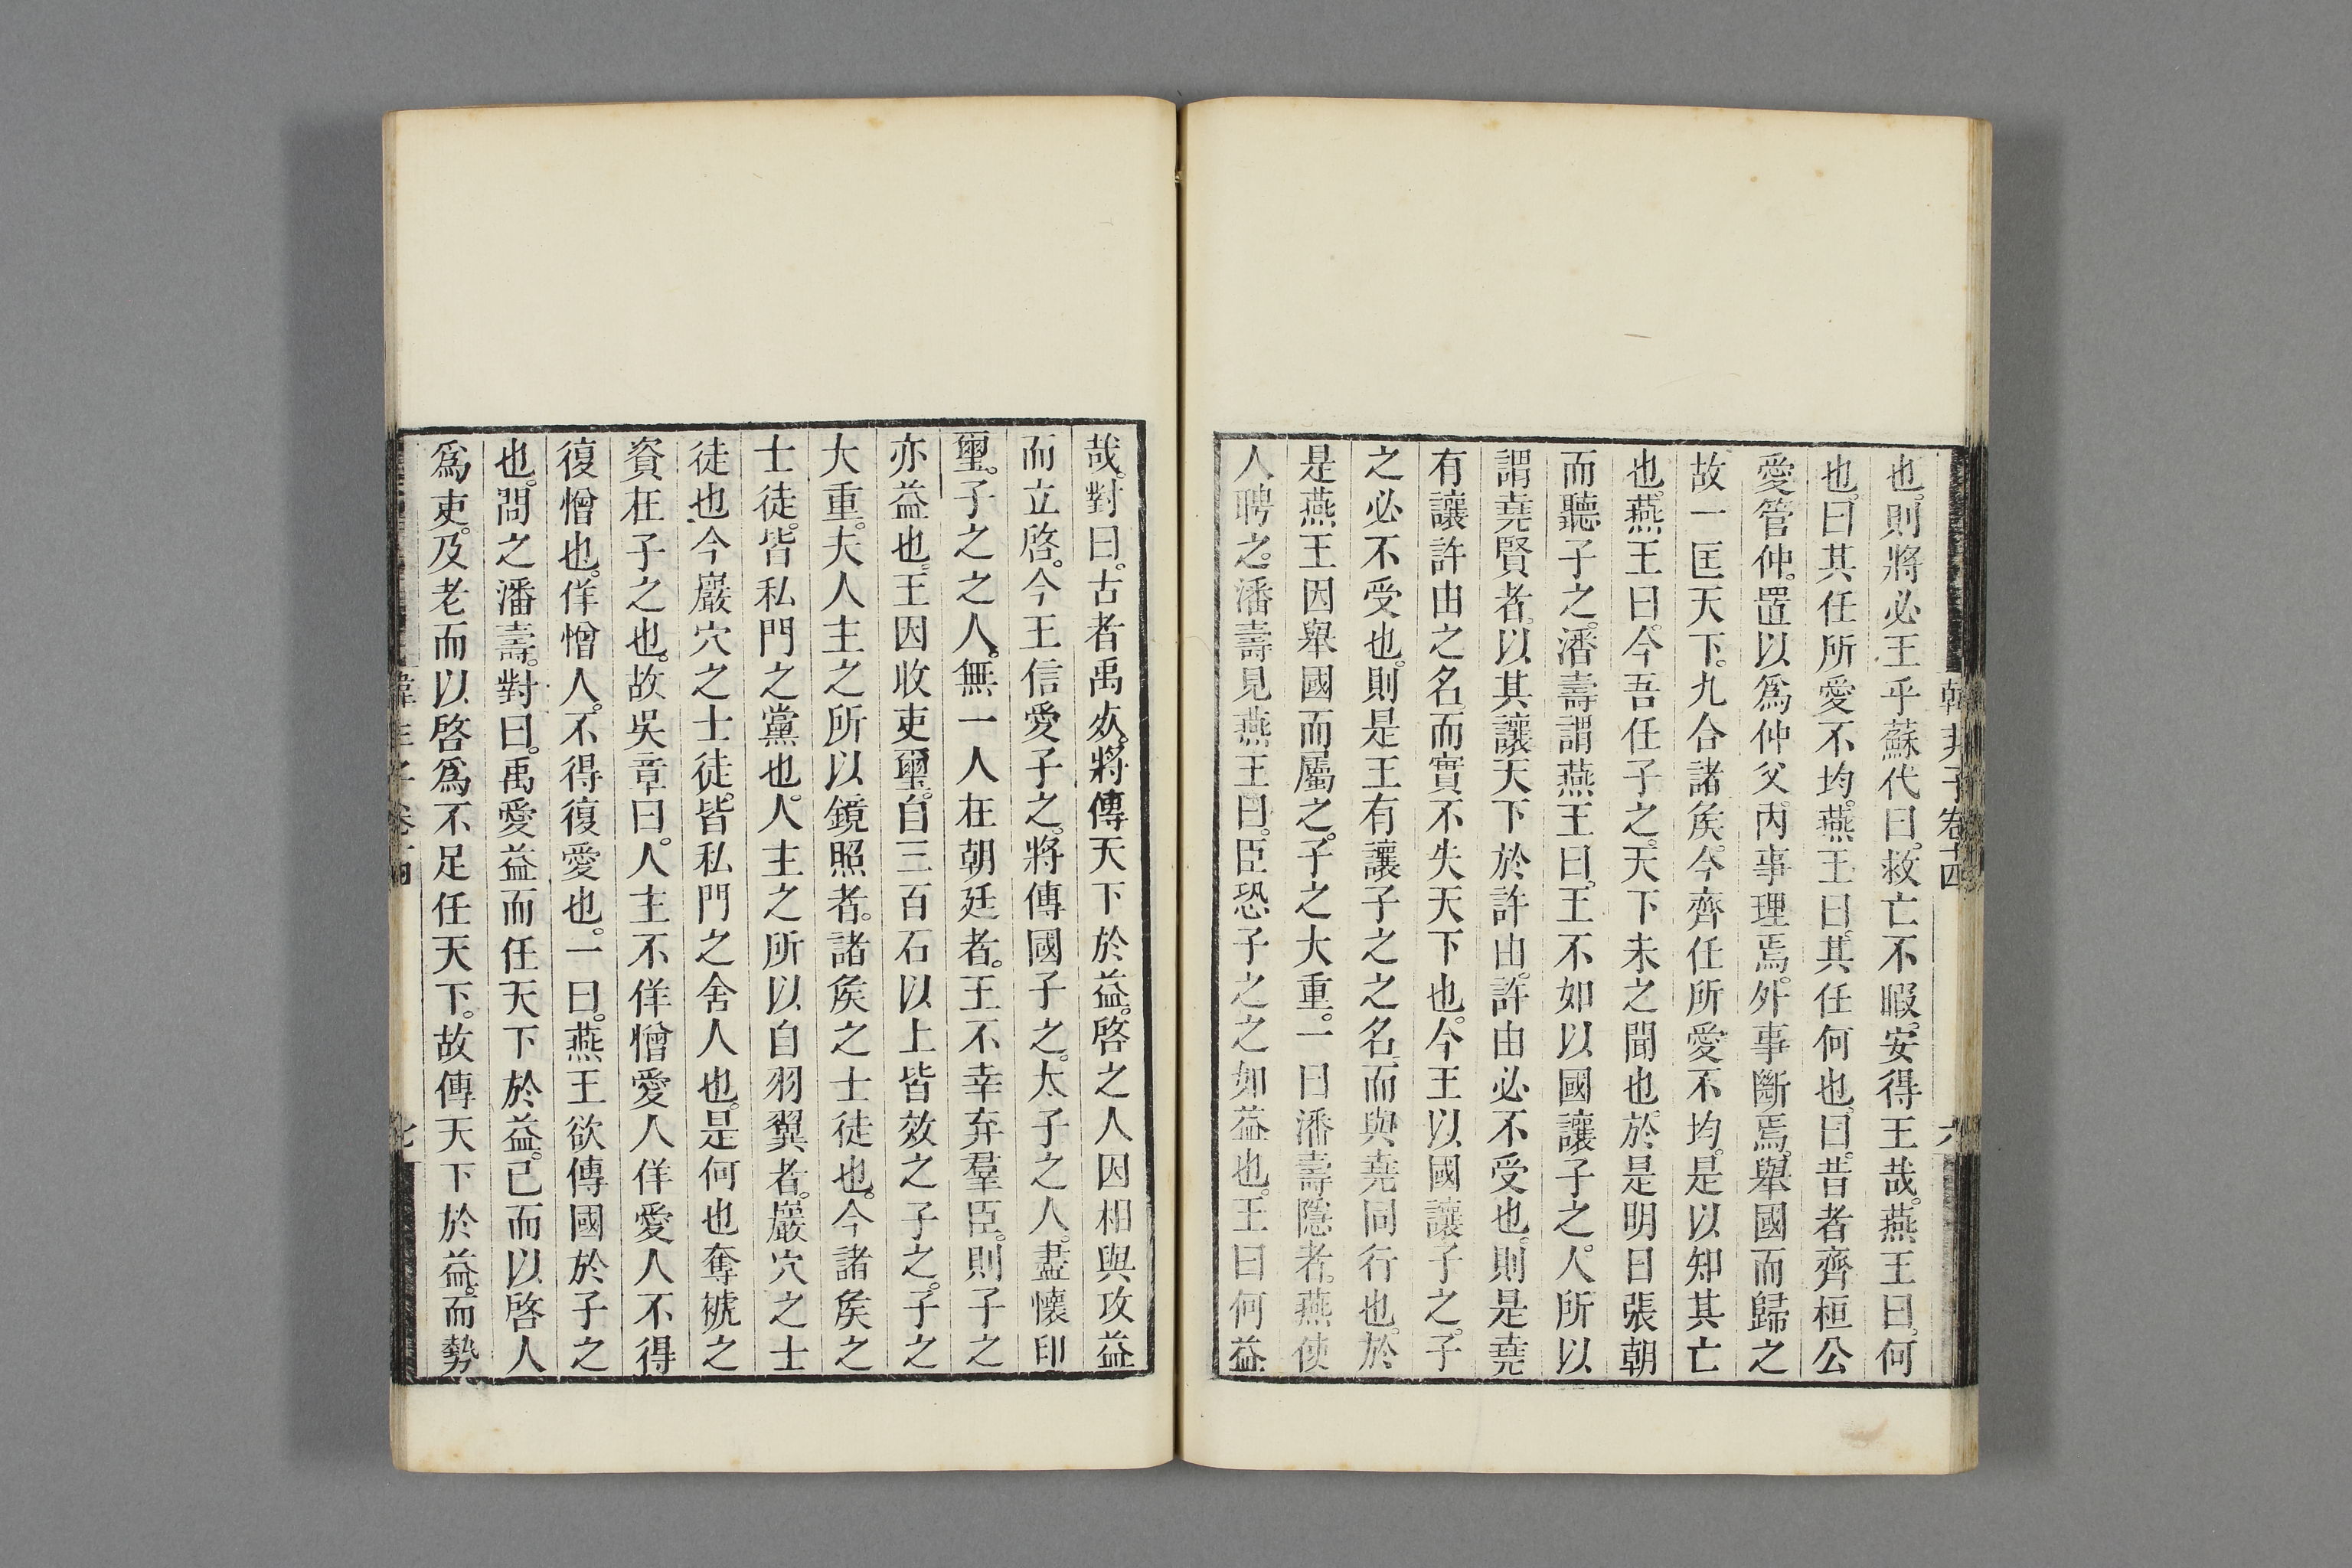 韓非子卷十四
六
也。則將必王乎蘇代曰。救亡不暇。安得王哉。燕王曰。何
也。曰其任所愛不均。燕王曰。其任何也。曰。昔者齊桓公
愛管仲。置以爲仲父。內事理焉。外事斷焉。舉國而歸之
故一匡天下。九合諸矦。今齊任所愛不均。是以知其亡
也。燕王曰。今吾任子之。天下未之聞也。於是明日張朝
而聽子之。潘壽謂燕王曰。王不如以國讓子之。人所以
謂堯賢者。以其讓天下於許由。許由必不受也。則是堯
有讓許由之名。而實不失天下也。今王以國讓子之。子
之必不受也。則是王有讓子之之名。而與堯同行也。於
是燕王因舉國而屬之。子之大重。一曰潘壽隱者。燕使
人聘之。潘壽見燕王曰。臣恐子之之如益也。王曰何益
哉。對曰。古者禹𣦸。將傳天下於益。啓之人因相與攻益
而立啓。今王信愛子之。將傳國子之。太子之人。盡懷印
璽。子之之人。無一人在朝廷者。王不幸弃羣臣。則子之
亦益也。王因收吏璽。自三百石以上皆效之子之。子之
大重。夫人主之所以鏡照者。諸矦之士徒也。今諸矦之
士徒。皆私門之黨也。人主之所以自羽翼者。巖穴之士
徒也。今巖穴之士徒。皆私門之舍人也。是何也奪褫之
資在子之也。故吳章曰。人主不佯憎愛人佯愛人不得
復憎也。佯憎人。不得復愛也。一曰。燕王欲傳國於子之
也。問之潘壽。對曰。禹愛益而任天下於益。已而以啓人
爲吏。及老而以啓爲不足任天下。故傳天下於益。而勢